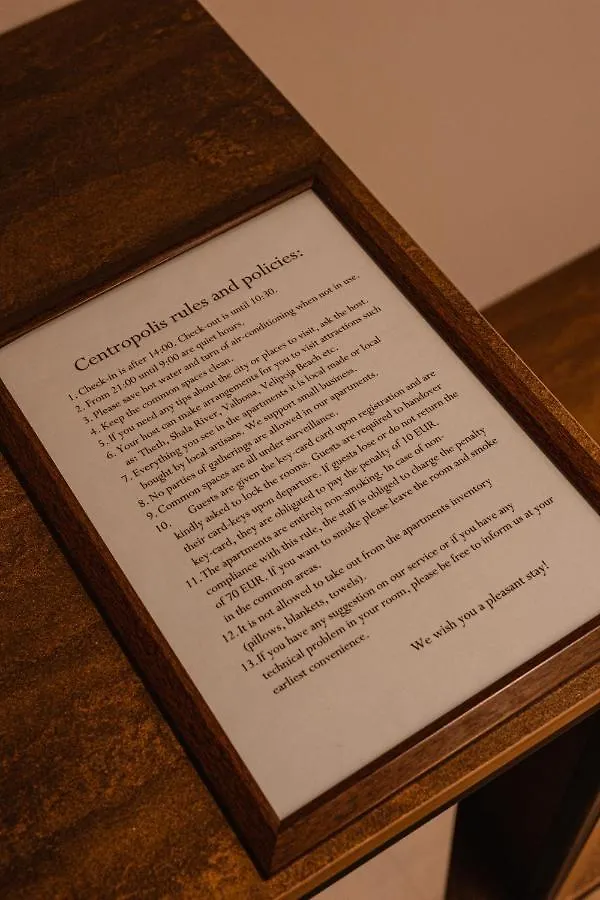 Centropolis rules and policies:
1. Check-in is after 14:00. Check-out is until 10:30.
2. From 21:00 until 9:00 are quiet hours.
3. Please save hot water and turn of air-conditioning when not in use.
4. Keep the common spaces clean.
5. If you need any tips about the city or places to visit, ask the host.
6. Your host can make arrangements for you to visit attractions such
as: Theth, Shala River, Valbona, Velipoja Beach etc.
7. Everything you see in the apartments it is local made or local
bought by local artisans. We support small business.
8. No parties of gatherings are allowed in our apartments.
9. Common spaces are all under surveillance.
10. Guests are given the key-card card upon registration and are
kindly asked to lock the rooms. Guests are required to handover
their card-keys upon departure. If guests lose or do not return the
key-card, they are obligated to pay the penalty of 10 EUR.
11. The apartments are entirely non-smoking. In case of non-
compliance with this rule, the staff is obliged to charge the penalty
of 70 EUR. If you want to smoke please leave the room and smoke
in the common areas.
12. It is not allowed to take out from the apartments inventory
(pillows, blankets, towels).
13. If you have any suggestion on our service or if you have any
technical problem in your room, please be free to inform us at your
earliest convenience.
We wish you a pleasant stay!